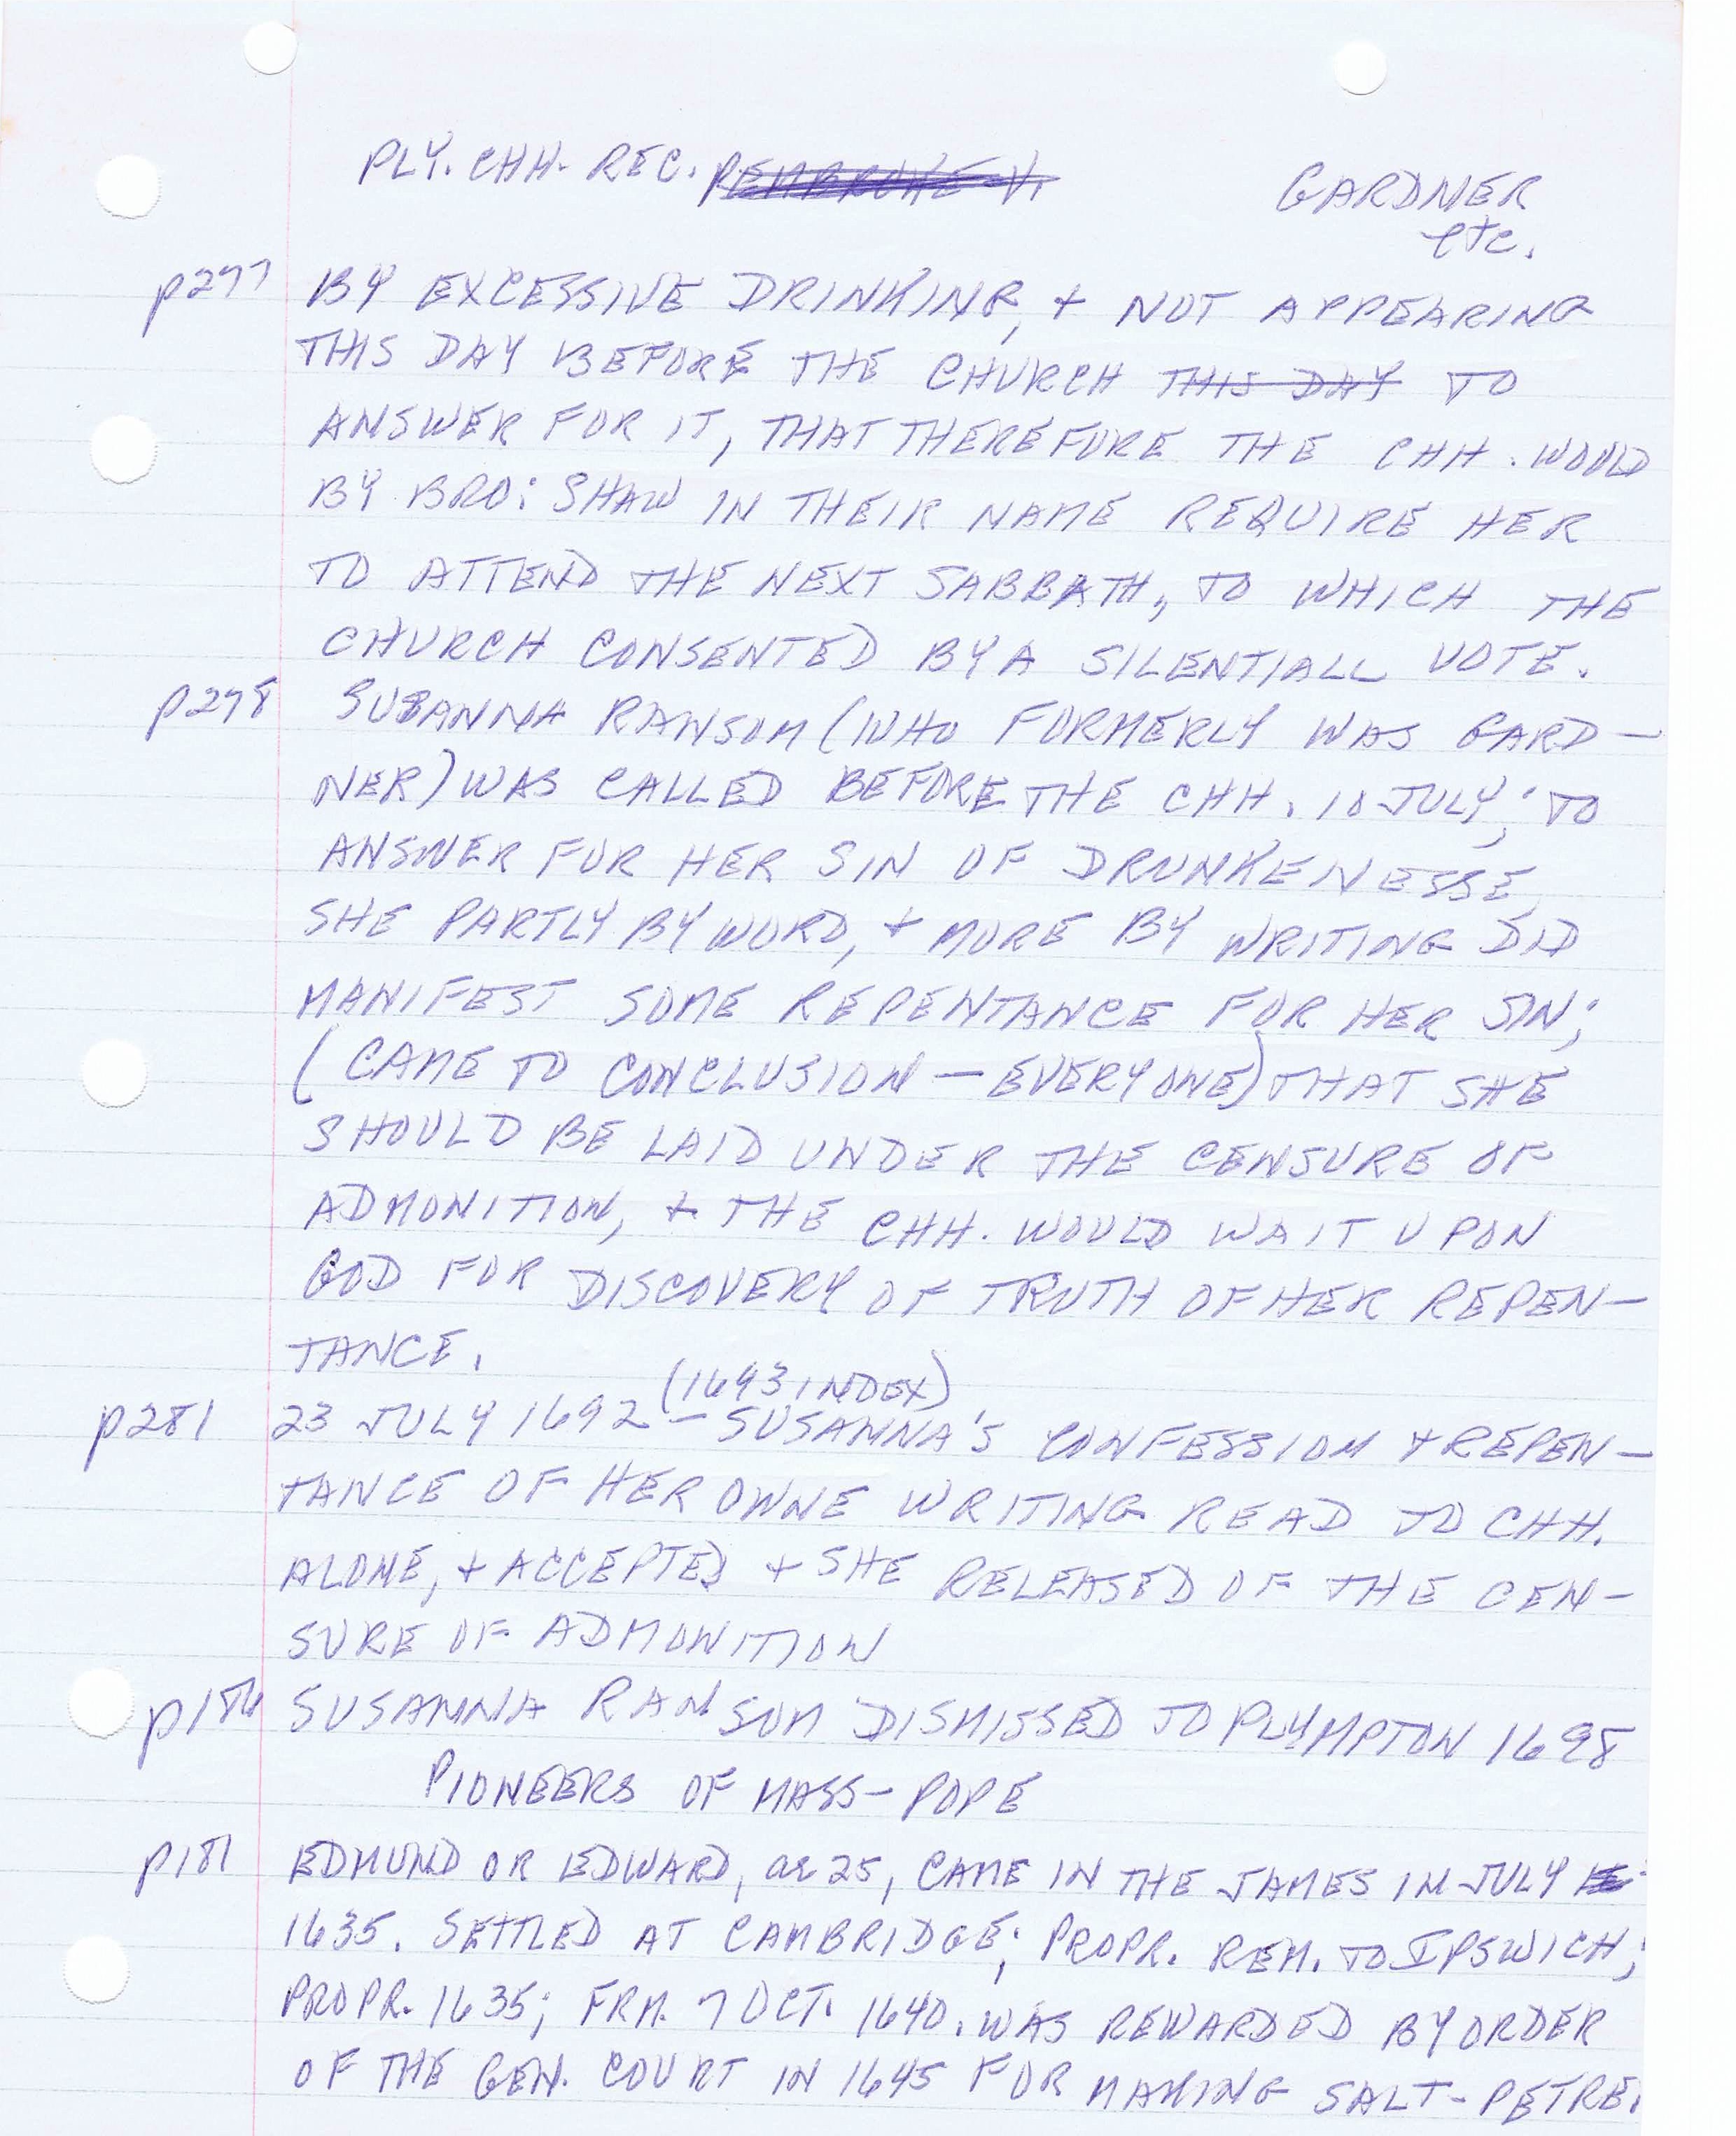 PLY. CHH. REC. PEMBROKE V. GARDNER
etc.
p277 BY EXCESSIVE DRINKING, + NOT APPEARING
THIS DAY BEFORE THE CHURCH THIS DAY TO
ANSWER FOR IT, THAT THEREFORE THE CHH. WOULD
BY BRO: SHAW IN THEIR NAME REQUIRE HER
TO ATTEND THE NEXT SABBATH, TO WHICH THE
CHURCH CONSENTED BY A SILENTIALL VOTE.
p278 SUSANNA RANSOM (WHO FORMERLY WAS GARD-
NER) WAS CALLED BEFORE THE CHH. 10 JULY; TO
ANSWER FOR HER SIN OF DRUNKENESSE,
SHE PARTLY BY WORD, + MORE BY WRITING DID
MANIFEST SOME REPENTANCE FOR HER SIN;
(CAME TO CONCLUSION - EVERYONE) THAT SHE
SHOULD BE LAID UNDER THE CENSURE OF
ADMONITION, + THE CHH. WOULD WAIT UPON
GOD FOR DISCOVERY OF TRUTH OF HER REPEN-
TANCE.
(1693 INDEX)
p281 23 JULY 1692 - SUSANNA'S CONFESSION + REPEN-
TANCE OF HER OWNE WRITING READ TO CHH.
ALONE, + ACCEPTED + SHE RELEASED OF THE CEN-
SURE OF ADMONITION
SUSANNA RANSOM DISMISSED TO PLYMPTON 1698
PIONEERS OF MASS - POPE
p181 EDMUND OR EDWARD, ae 25, CAME IN THE JAMES IN JULY
1635. SETTLED AT CAMBRIDGE; PROPR. REM. TO IPSWICH;
PROPR. 1635; FRM. 7 OCT. 1640. WAS REWARDED BY ORDER
OF THE GEN. COURT IN 1645 FOR MAKING SALT-PETRE.